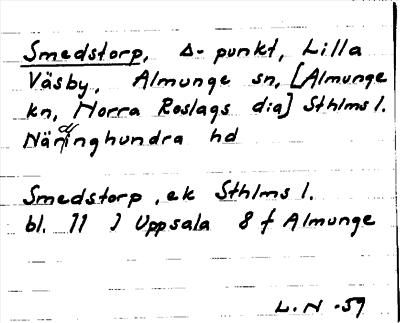 Smedstorp, Δ-punkt, Lilla
Väsby, Almunge sn, [Almunge
kn, Norra Roslags dia] Sthlms l.
Närdinghundra hd
Smedstorp, ek Sthlms l.
bl. 11 I Uppsala 8 f Almunge
L.N -59